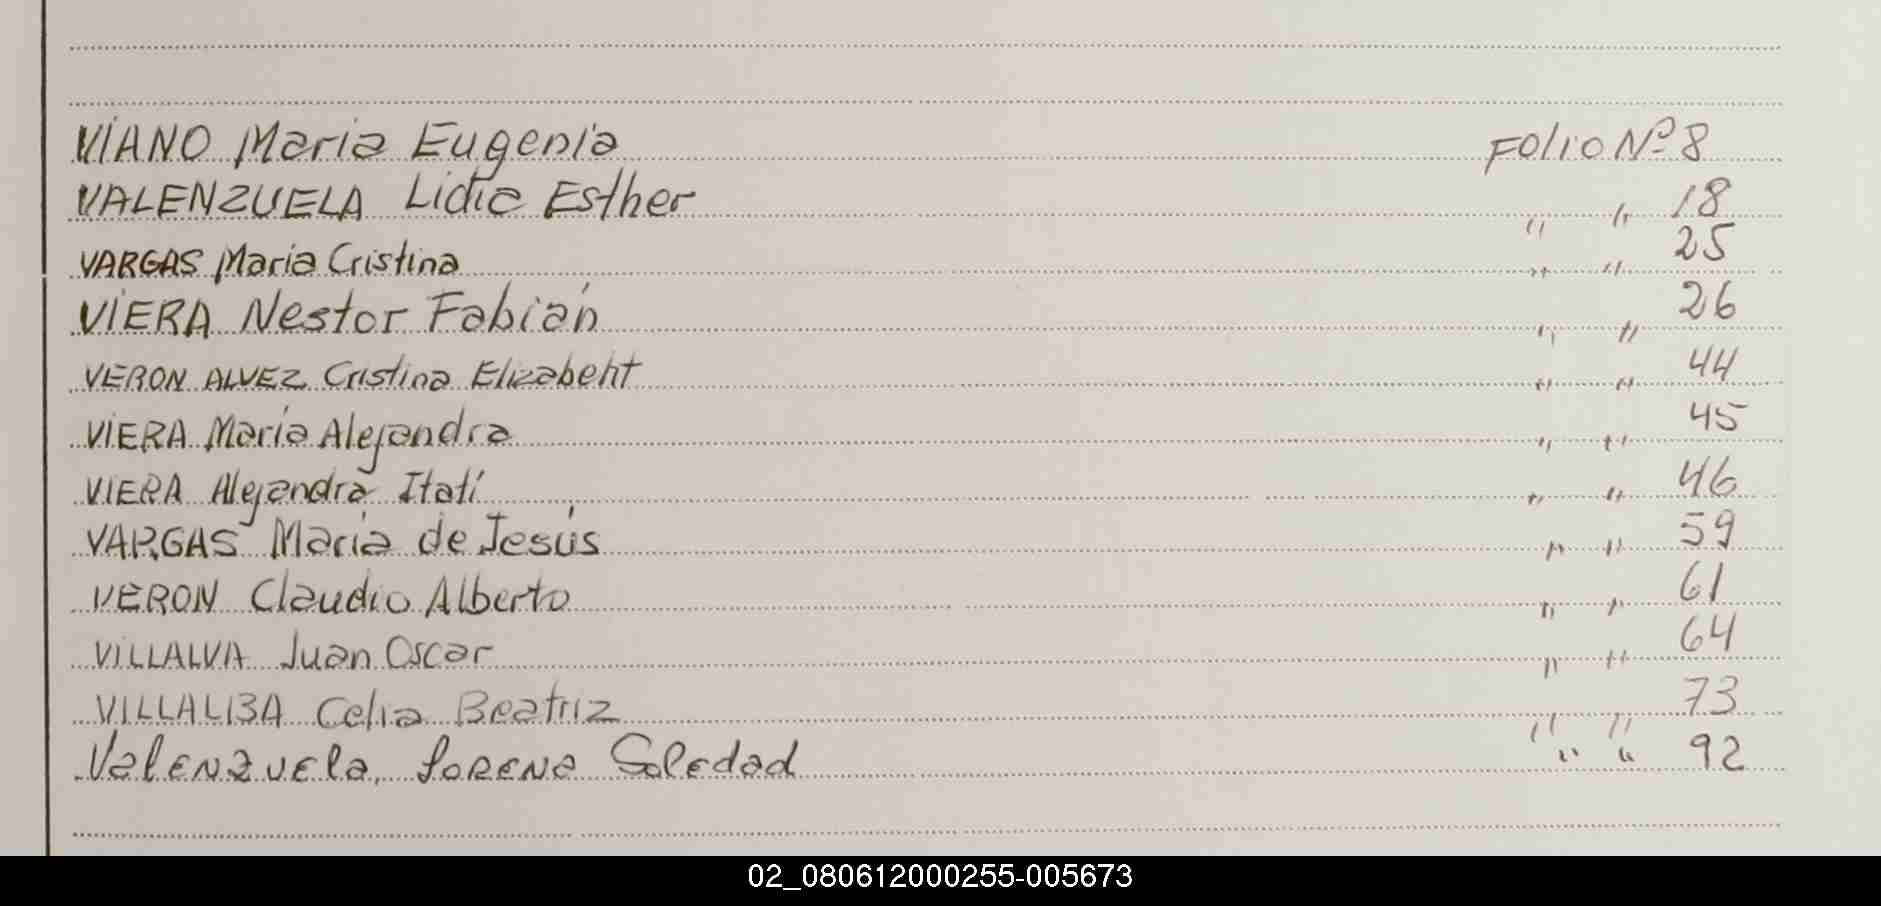 VIANO Maria Eugenia FOLIO Nº 8
VALENZUELA Lidia Esther " " 18
VARGAS Maria Cristina " " 25
VIERA Nestor Fabián " " 26
VERON ALVEZ Cristina Elizabeht " " 44
VIERA María Alejandra " " 45
VIERA Alejandra Itatí " " 46
VARGAS María de Jesús " " 59
VERON Claudio Alberto " " 61
VILLALVA Juan Oscar " " 64
VILLALBA Celia Beatriz " " 73
Valenzuela, Lorena Soledad " " 92
02_080612000255-005673